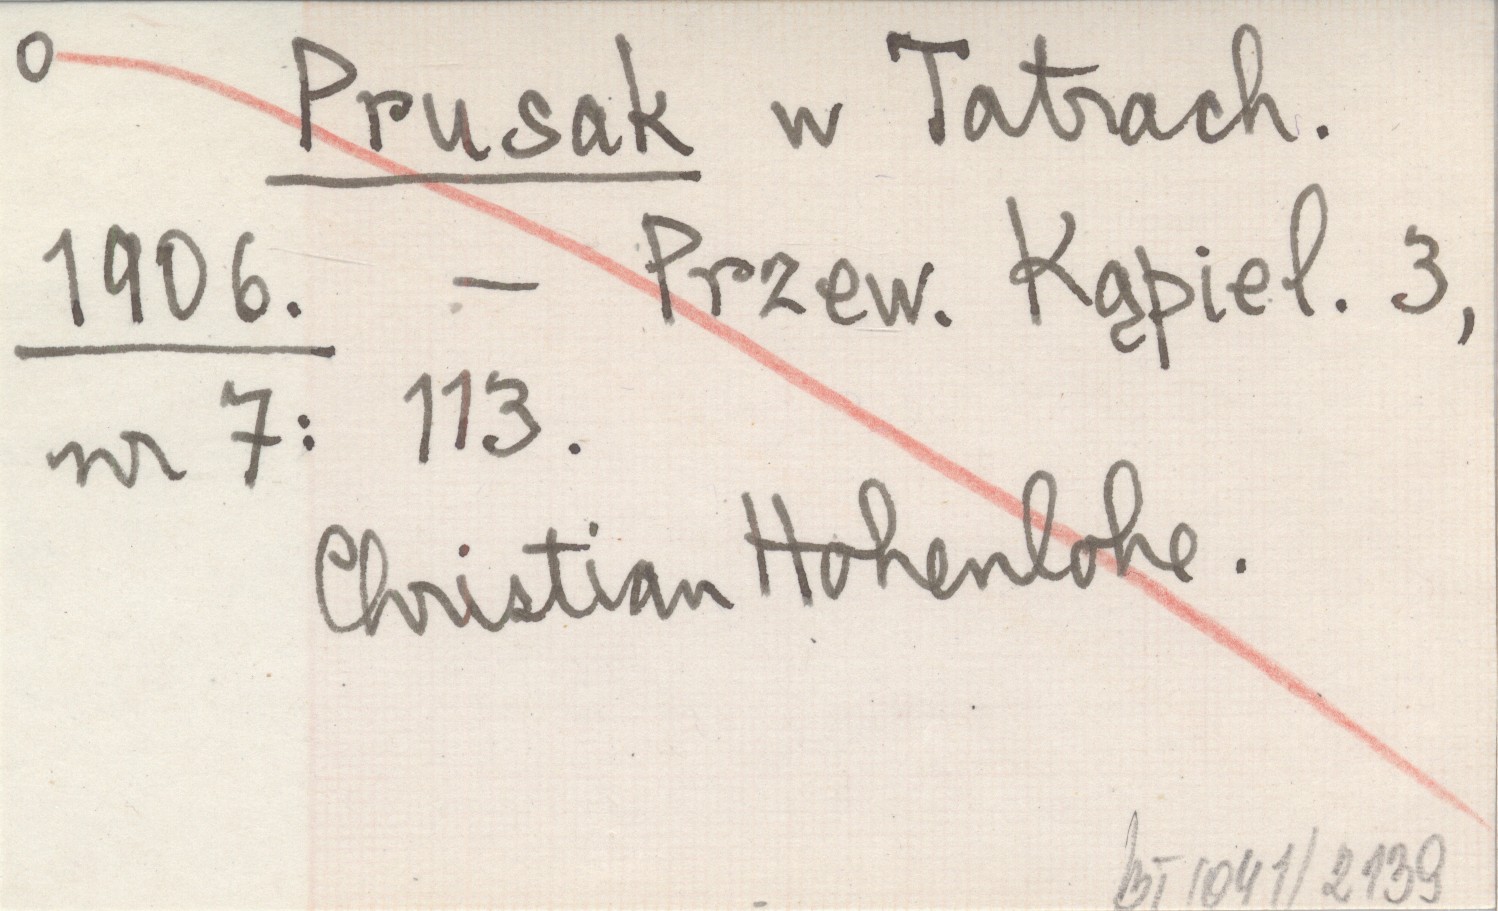 o Prusak w Tatrach.
1906. – Przew. Kąpiel. 3,
nr 7: 113.
Christian Hohenlohe.
BT 1041/2139